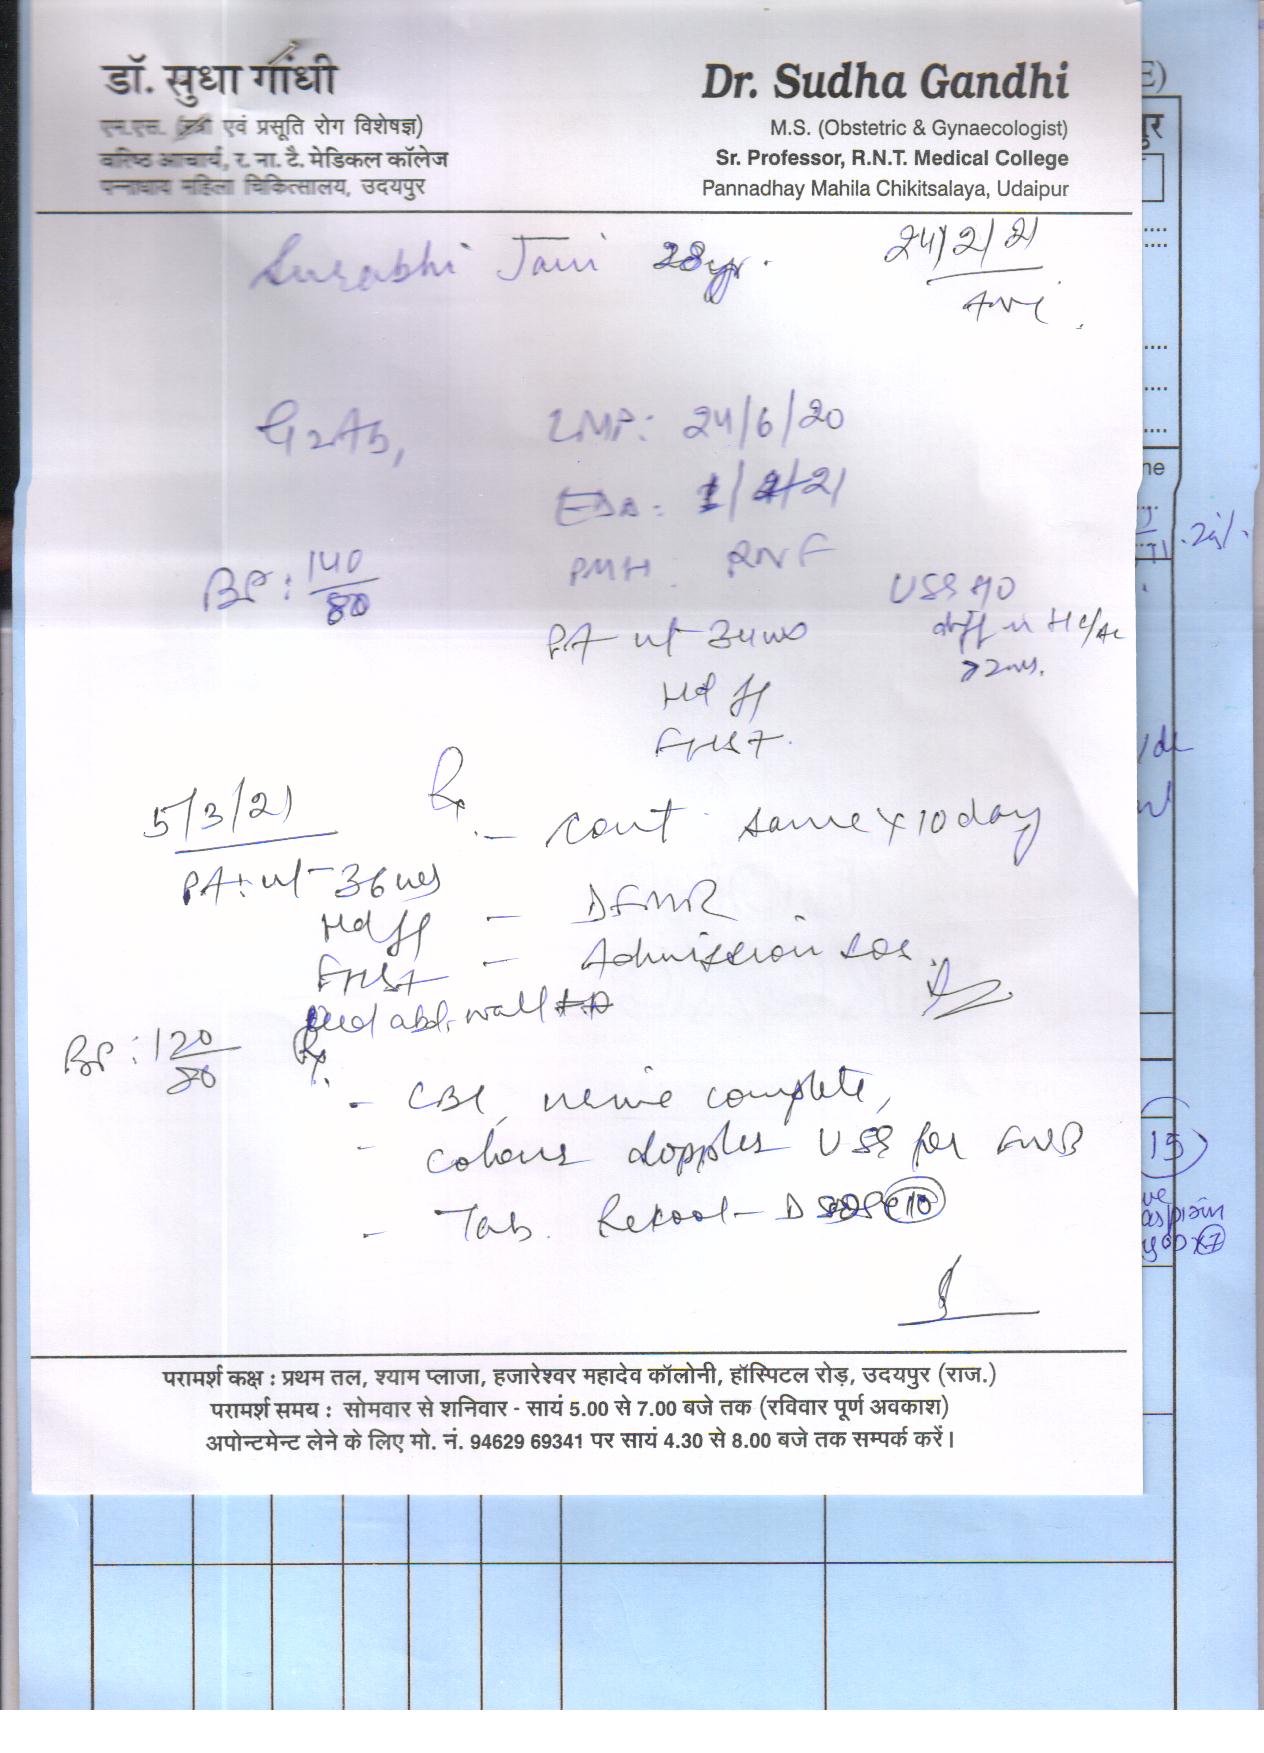 डॉ. सुधा गाँधी
एम.एस. (स्त्री एवं प्रसूति रोग विशेषज्ञ)
वरिष्ठ आचार्य, र. ना. टै. मेडिकल कॉलेज
पन्नाधाय महिला चिकित्सालय, उदयपुर
Dr. Sudha Gandhi
M.S. (Obstetric & Gynaecologist)
Sr. Professor, R.N.T. Medical College
Pannadhay Mahila Chikitsalaya, Udaipur
Surabhi Jain 28yr.
24/2/21
G2Ab1
LMP: 24/6/20
EDD: 1/4/21
BP: 140/80
PMH. RNF
USG
diff in HC/AC
>2ws.
PA ut 34ws
FHS+
Rx
- cont. same x 10 day
- DFMR
- Admission sos.
5/3/21
PA: ut - 36ws
FHS+
abd. wall
BP: 120/80
Rx.
- CBC, urine complete,
- colour doppler USG for FWB
- Tab. Rekool-D
परामर्श कक्ष : प्रथम तल, श्याम प्लाजा, हजारेश्वर महादेव कॉलोनी, हॉस्पिटल रोड़, उदयपुर (राज.)
परामर्श समय : सोमवार से शनिवार - सायं 5.00 से 7.00 बजे तक (रविवार पूर्ण अवकाश)
अपोन्टमेन्ट लेने के लिए मो. नं. 94629 69341 पर सायं 4.30 से 8.00 बजे तक सम्पर्क करें।